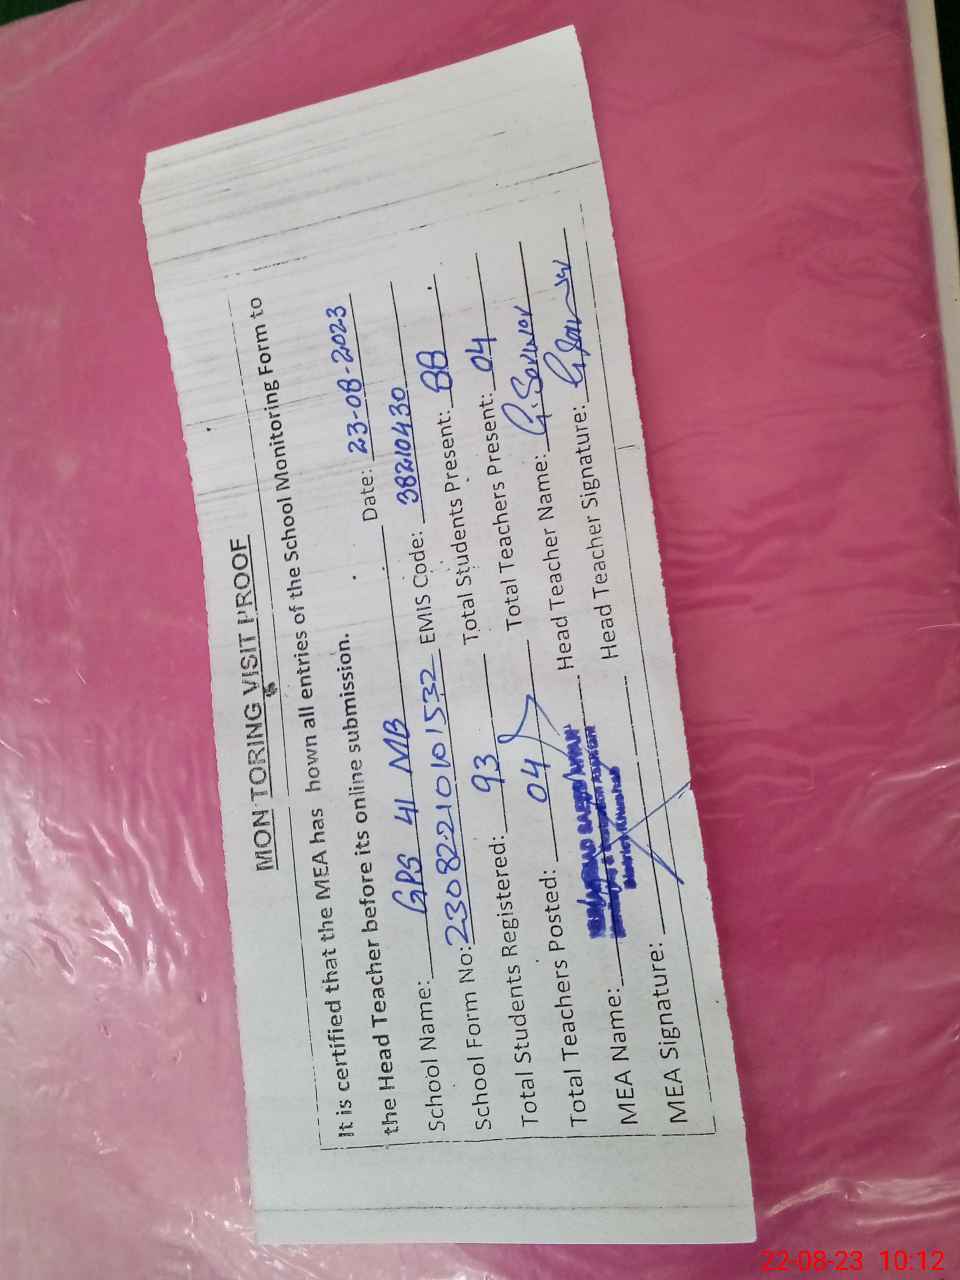 MONITORING VISIT PROOF
It is certified that the MEA has hown all entries of the School Monitoring Form to
the Head Teacher before its online submission. Date: 23-08-2023
School Name: GPS 41 MB EMIS Code: 38210430
School Form No: 23082210101532 Total Students Present: 88
Total Students Registered: 93 Total Teachers Present: 04
Total Teachers Posted: 04 Head Teacher Name: G. Sarwar
MEA Name: Head Teacher Signature:
District Khushab
MEA Signature:
22-08-23 10:12